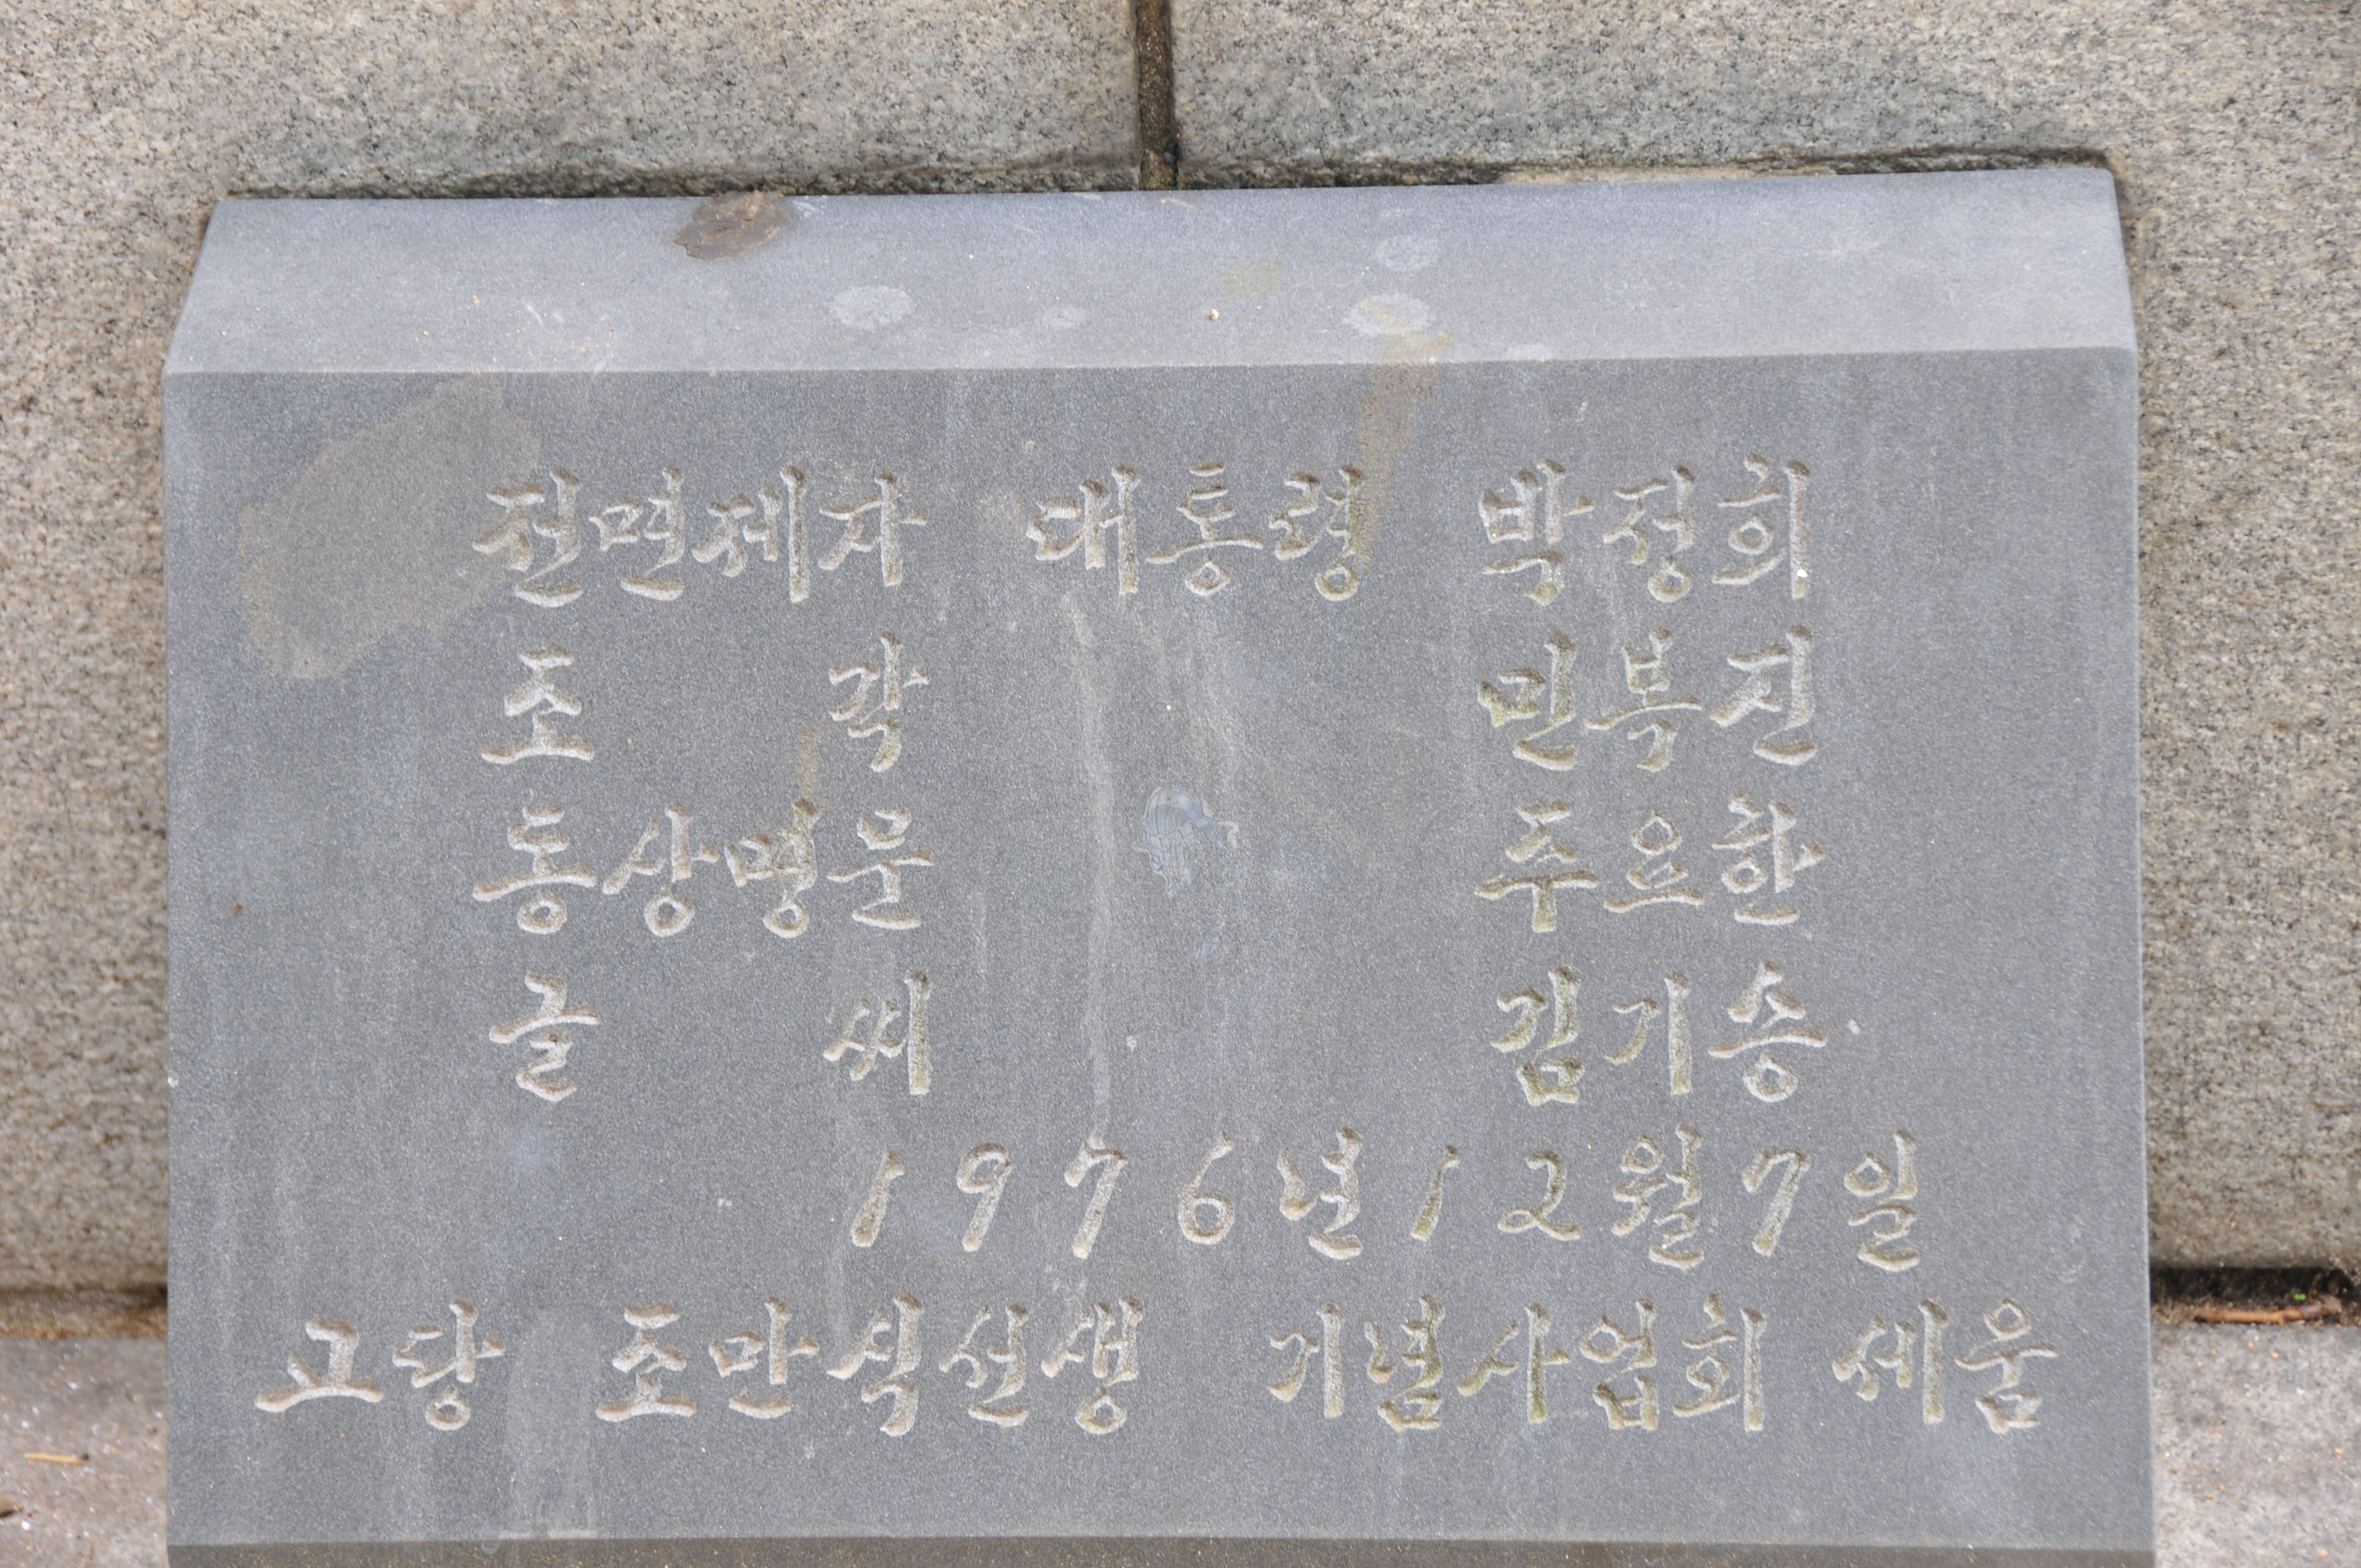 전면제자 대통령 박정희
조 각 민복진
동상명문 주요한
글 씨 김기승
1976년12월7일
고당 조만식선생 기념사업회 세움